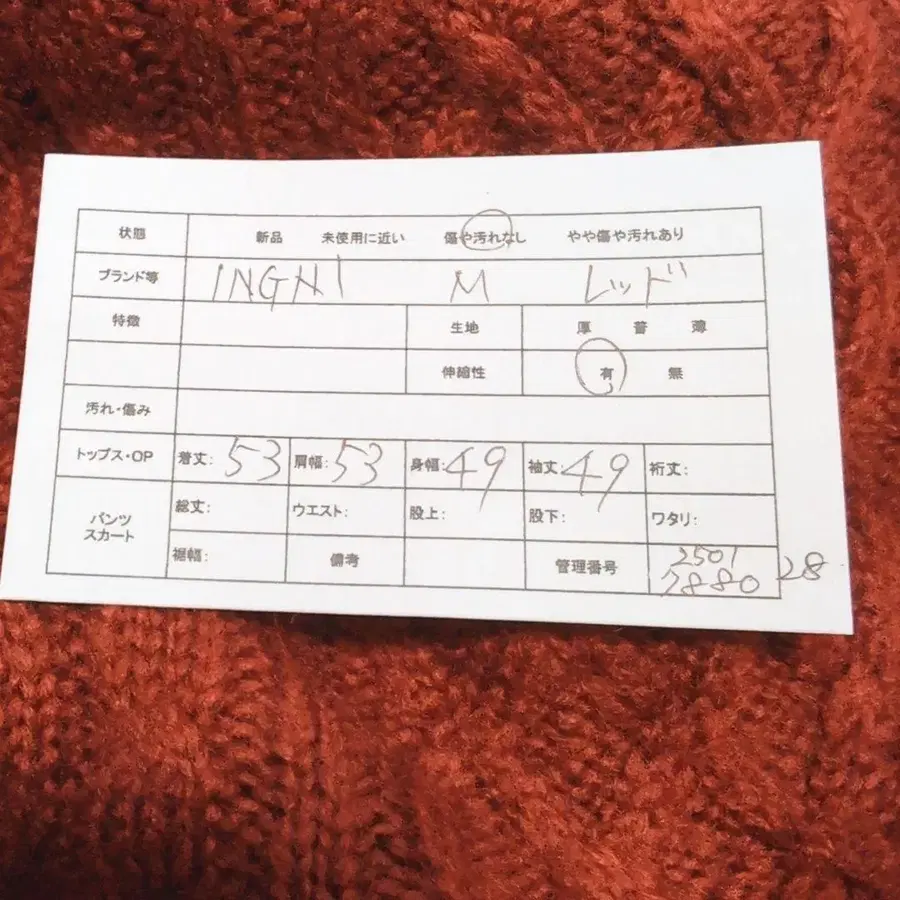 状態 新品 未使用に近い 傷や汚れなし やや傷や汚れあり
ブランド等 INGNI M レッド
特徴 生地 厚 普 薄
伸縮性 有 無
汚れ・傷み
トップス・OP 着丈: 53 肩幅: 53 身幅: 49 袖丈: 49 裄丈:
パンツ スカート 総丈: ウエスト: 股上: 股下: ワタリ:
裾幅: 備考 管理番号 2501 28
7880